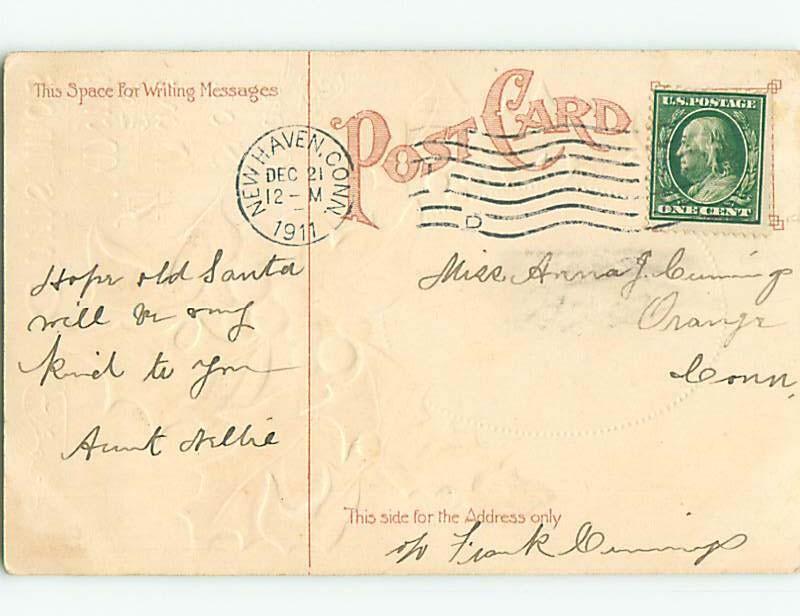 This Space For Writing Messages
POST CARD
NEW HAVEN, CONN.
DEC 21
12 – M
1911
D
U.S. POSTAGE
ONE CENT
Hope old Santa
will be very
kind to you
Aunt Nellie
Miss Anna J. Cummings
Orange
Conn.
This side for the Address only
c/o Frank Cummings